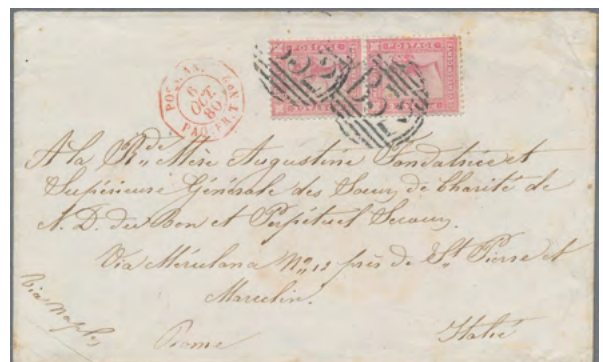 POSTAGE
POSTAGE
B53
B53
6
OCT
80
PAQ. FR. T
A la Rde Mère Augustine Fondatrice et
Supérieure Générale des Soeurs de Charité de
N. D. du Bon et Perpétuel Secours.
Via Mérulana No 12 près de St Pierre et
Marcelin.
Via Naples
Rome
Italie